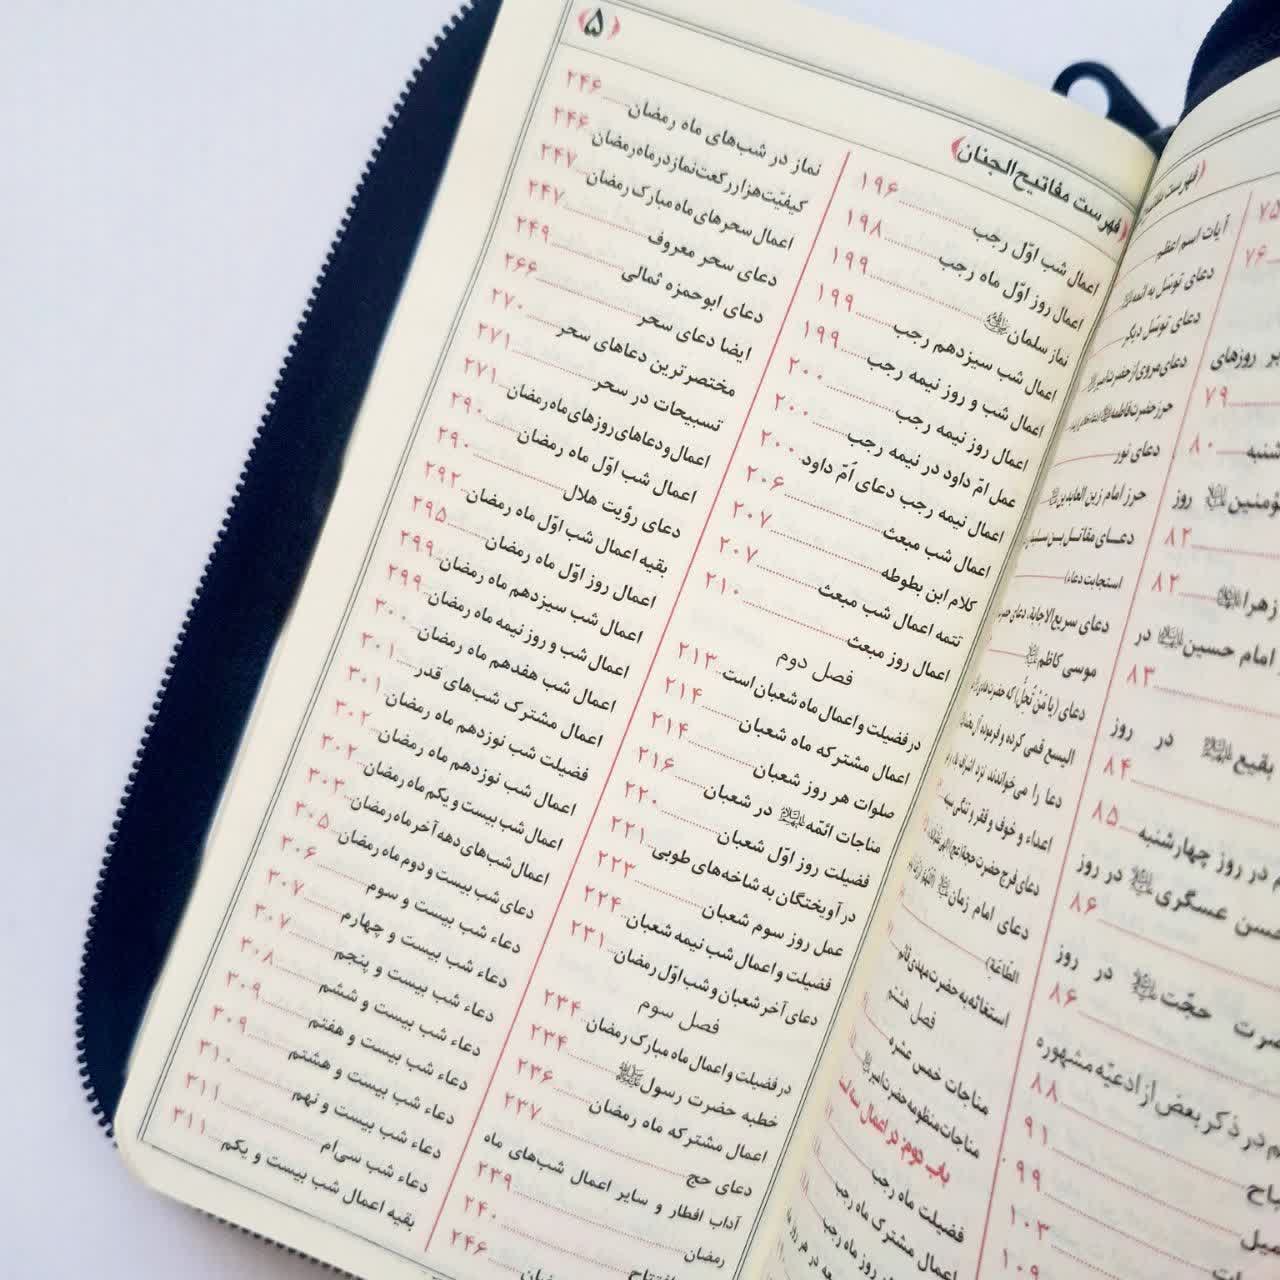 آیات اسم اعظم
دعای توسّل به ائمه
دعای توسّل دیگر
دعای مروی از حضرت
حرز حضرت فاطمه
دعای نور
حرز امام زین العابدین
دعای مقاتل بن سلیمان
استجابت دعاء)
دعای سریع الاجابة، دعای
موسی کاظم
دعای (یا مَنْ تُحَلُّ) که حضرت
الیسع
دعا را می‌خواندند نزد اشرف
اعداء و خوف و فقر و تنگی سینه
دعای فرج حضرت حجة
دعای امام زمان
الطّاعَةِ)
استغاثه به حضرت مهدی
فصل هشتم
مناجات خمس عشره
مناجات منظومه حضرت امیر
باب دوم: در اعمال سه ماه
فضیلت ماه رجب
اعمال مشترک ماه رجب
هر روز ماه رجب
۷۵
۷۶
بر روزهای
۷۹
شنبه ۸۰
روز
۸۲
زهرا ۸۲
امام حسین در
۸۳
بقیع در روز
۸۴
در روز چهارشنبه ۸۵
عسگری در روز
۸۶
حجّت در روز
۸۶
در ذکر بعض از ادعیّه مشهوره
۸۸
۹۱
۹۹
۱۰۳
۱۰۹
فهرست مفاتیح الجنان
۵
اعمال شب اوّل رجب ۱۹۶
اعمال روز اوّل ماه رجب ۱۹۸
نماز سلمان ۱۹۹
اعمال شب سیزدهم رجب ۱۹۹
اعمال شب و روز نیمه رجب ۱۹۹
اعمال روز نیمه رجب ۲۰۰
عمل امّ داود در نیمه رجب ۲۰۰
اعمال نیمه رجب دعای اُمّ داود ۲۰۰
اعمال شب مبعث ۲۰۶
کلام ابن بطوطه ۲۰۷
تتمه اعمال شب مبعث ۲۰۷
اعمال روز مبعث ۲۱۰
فصل دوم
در فضیلت و اعمال ماه شعبان است ۲۱۳
اعمال مشترکه ماه شعبان ۲۱۴
صلوات هر روز شعبان ۲۱۴
مناجات ائمّه در شعبان ۲۱۶
فضیلت روز اوّل شعبان ۲۲۰
در آویختگان به شاخه‌های طوبی ۲۲۱
عمل روز سوم شعبان ۲۲۳
فضیلت و اعمال شب نیمه شعبان ۲۲۴
دعای آخر شعبان و شب اوّل رمضان ۲۳۱
فصل سوم
در فضیلت و اعمال ماه مبارک رمضان ۲۳۴
خطبه حضرت رسول ۲۳۴
اعمال مشترکه ماه رمضان ۲۳۶
دعای حج ۲۳۷
آداب افطار و سایر اعمال شب‌های ماه
رمضان ۲۳۹
۲۴۰
۲۴۶
نماز در شب‌های ماه رمضان ۲۴۶
کیفیّت هزار رکعت نماز در ماه رمضان ۲۴۶
اعمال سحرهای ماه مبارک رمضان ۲۴۷
دعای سحر معروف ۲۴۷
دعای ابوحمزه ثمالی ۲۴۹
ایضا دعای سحر ۲۶۶
مختصرترین دعاهای سحر ۲۷۰
تسبیحات در سحر ۲۷۱
اعمال و دعاهای روزهای ماه رمضان ۲۷۱
اعمال شب اوّل ماه رمضان ۲۹۰
دعای رؤیت هلال ۲۹۰
بقیه اعمال شب اوّل ماه رمضان ۲۹۲
اعمال روز اوّل ماه رمضان ۲۹۵
اعمال شب سیزدهم ماه رمضان ۲۹۹
اعمال شب و روز نیمه ماه رمضان ۲۹۹
اعمال شب هفدهم ماه رمضان ۳۰۰
اعمال مشترک شب‌های قدر ۳۰۱
فضیلت شب نوزدهم ماه رمضان ۳۰۱
اعمال شب نوزدهم ماه رمضان ۳۰۲
اعمال شب بیست و یکم ماه رمضان ۳۰۲
اعمال شب‌های دهه آخر ماه رمضان ۳۰۳
دعای شب بیست و دوم ماه رمضان ۳۰۵
دعاء شب بیست و سوم ۳۰۶
دعاء شب بیست و چهارم ۳۰۷
دعاء شب بیست و پنجم ۳۰۷
دعاء شب بیست و ششم ۳۰۸
دعاء شب بیست و هفتم ۳۰۹
دعاء شب بیست و هشتم ۳۰۹
دعاء شب بیست و نهم ۳۱۰
دعاء شب سی‌ام ۳۱۱
بقیه اعمال شب بیست و یکم ۳۱۱